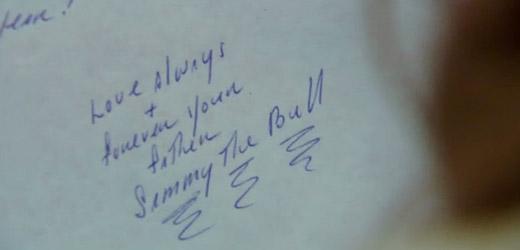 Love Always
+
forever your
father
Sammy The Bull